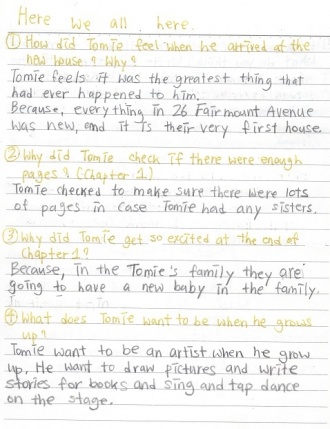 Here we all here.
① How did Tomie feel when he arrived at the
new house? Why?
Tomie feels it was the greatest thing that
had ever happened to him.
Because, everything in 26 Fairmount Avenue
was new, and it is their very first house
② Why did Tomie check if there were enough
pages? (Chapter 1)
Tomie checked to make sure there were lots
of pages in case Tomie had any sisters.
③ Why did Tomie get so excited at the end of
Chapter 1?
Because, in the Tomie's family they are
going to have a new baby in the family.
④ What does Tomie want to be when he grows
up?
Tomie want to be an artist when he grow
up, He want to draw pictures and write
stories for books and sing and tap dance
on the stage.